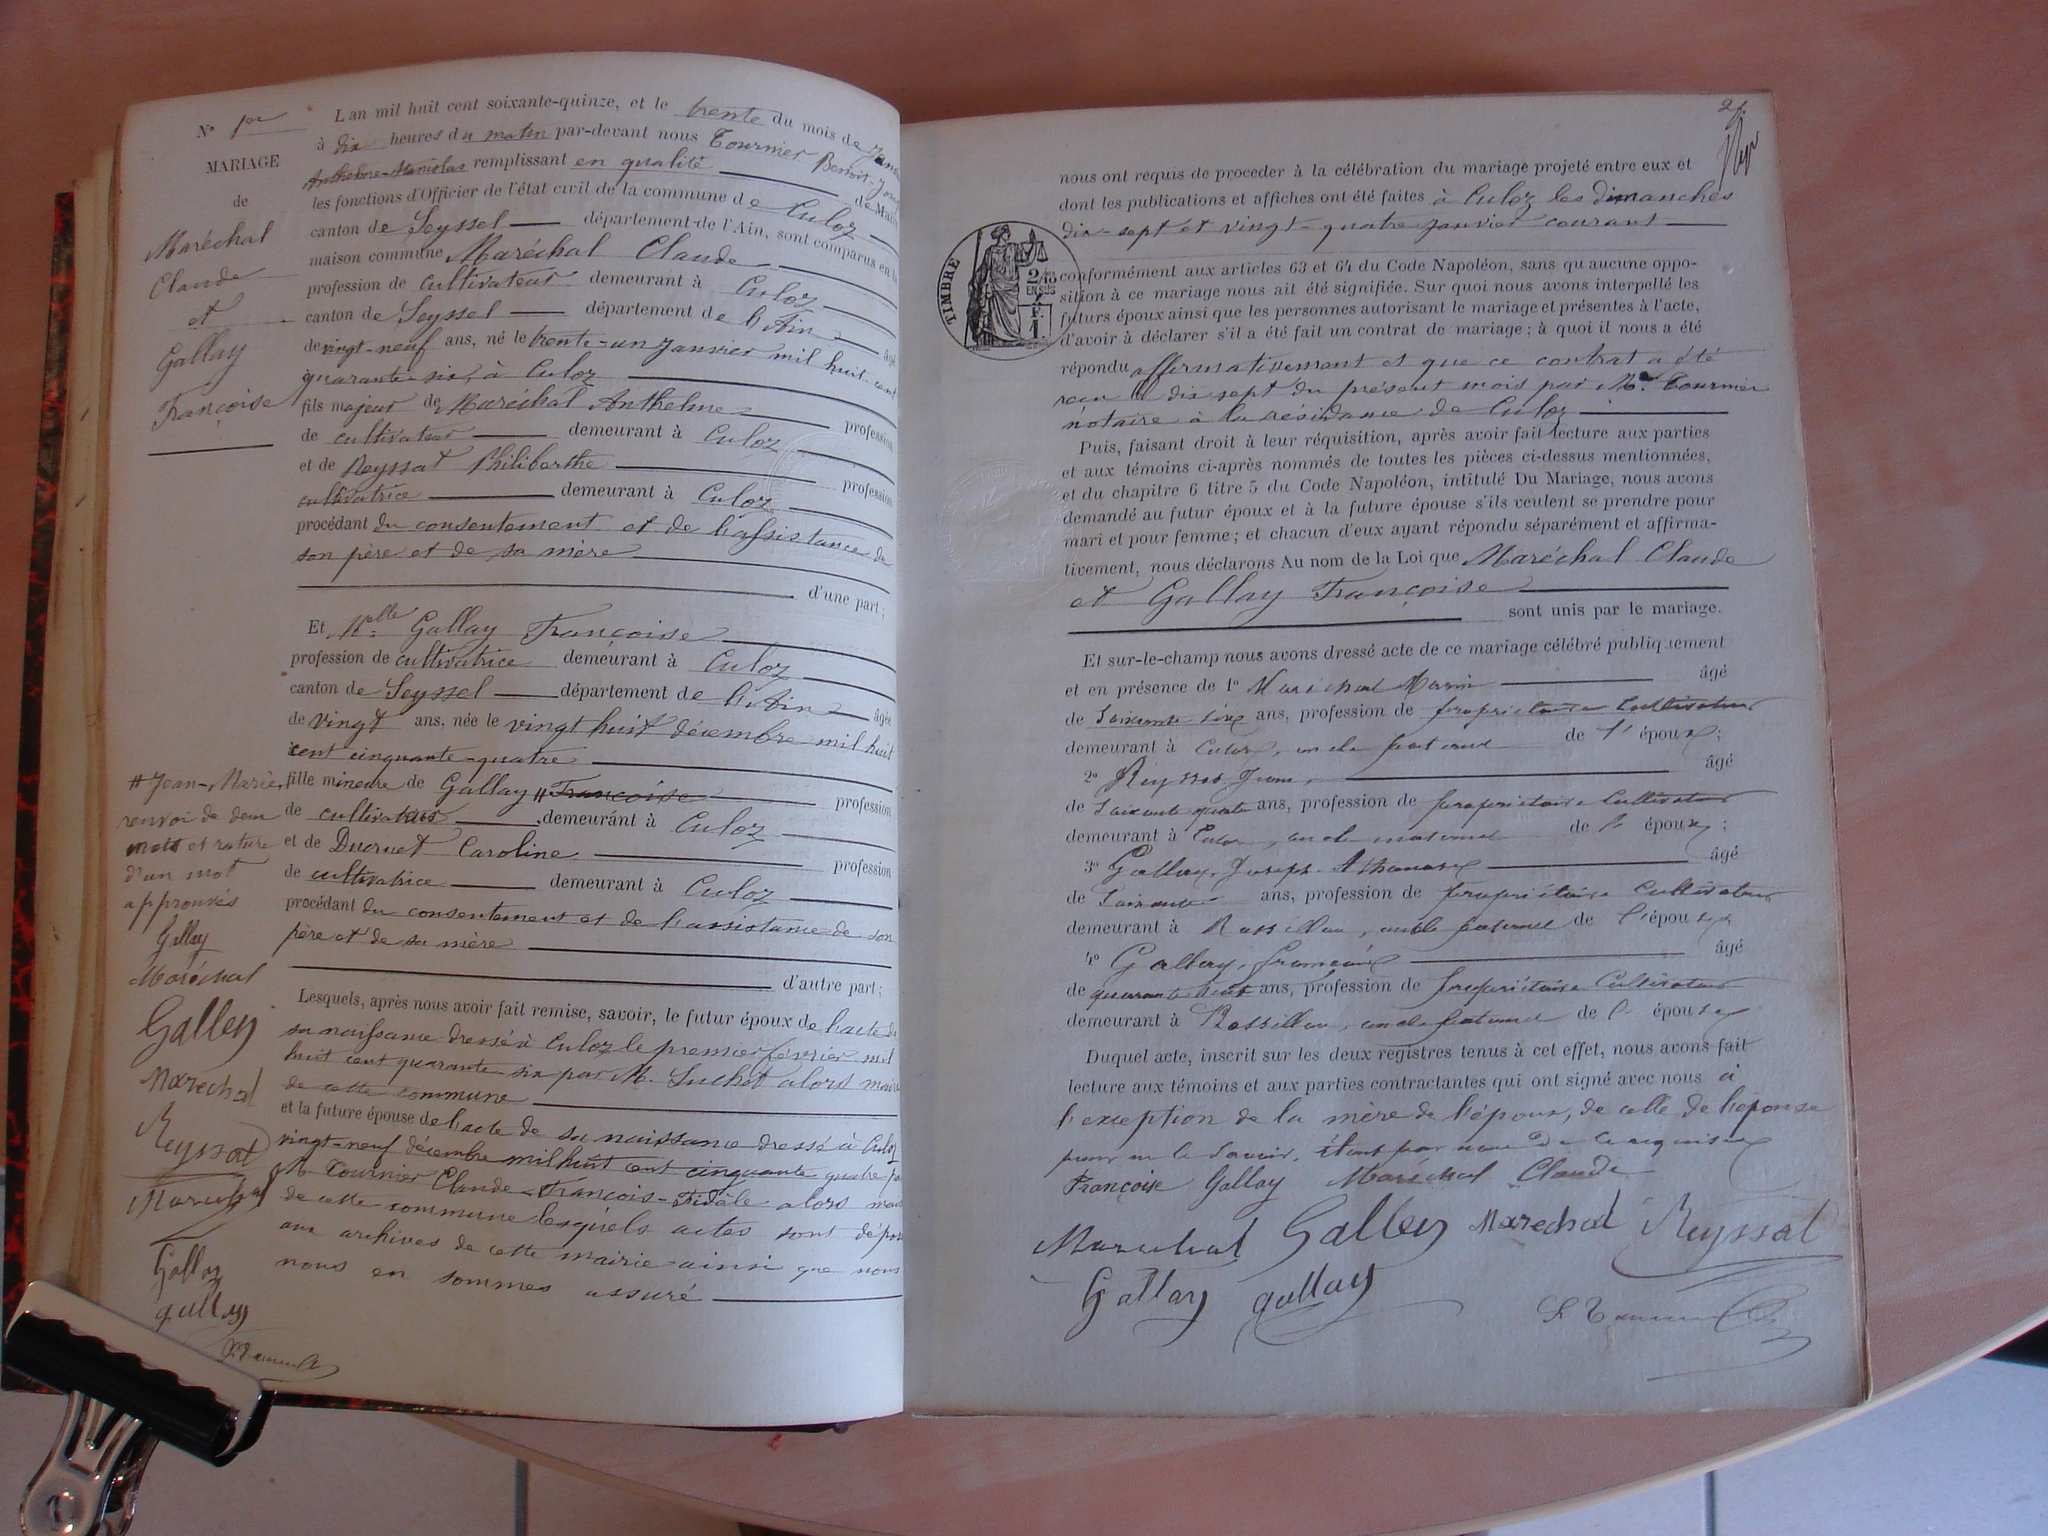 No 1er
MARIAGE
de
Maréchal
Claude
et
Gallay
Françoise
L an mil huit cent soixante-quinze, et le trente du mois de
à dix heures du matin par-devant nous Tournier Benoit-
Anthelme-Stanislas remplissant en qualité de
les fonctions d'Officier de l'état civil de la commune de Culoz
canton de Seyssel département de l'Ain, sont comparus en la
maison commune Maréchal Claude
profession de cultivateur demeurant à Culoz
canton de Seyssel département de l'Ain
de vingt-neuf ans, né le trente-un janvier mil huit cent
quarante-six, à Culoz
fils majeur de Maréchal Anthelme profession
de cultivateur demeurant à Culoz
et de Reyssat Philiberthe profession
cultivatrice demeurant à Culoz
procédant du consentement et de l'assistance de
son père et de sa mère
d'une part;
Et Melle Gallay Françoise
profession de cultivatrice demeurant à Culoz
canton de Seyssel département de l'Ain âgée
de vingt ans, née le vingt huit décembre mil huit
cent cinquante-quatre
fille mineure de Gallay # Françoise profession
de cultivateur demeurant à Culoz
et de Ducruet Caroline profession
de cultivatrice demeurant à Culoz
procédant du consentement et de l'assistance de son
père et de sa mère
d'autre part;
Lesquels, après nous avoir fait remise, savoir, le futur époux de l'acte de
sa naissance dressé à Culoz le premier février mil
huit cent quarante-six par M. Suchet alors maire
de cette commune
et la future épouse de l'acte de sa naissance dressé à Culoz
vingt-neuf décembre mil huit cent cinquante quatre par
M. Tournier Claude-François-Fidèle alors maire
de cette commune lesquels actes sont
aux archives de cette mairie ainsi que nous
nous en sommes assuré
# Jean-Marie
renvoi de deux
mots et rature
d'un mot
approuvés
Gallay
Maréchal
Galley
Marechal
Reyssat
Marechal
Gallay
gallay
nous ont requis de proceder à la célébration du mariage projeté entre eux et
dont les publications et affiches ont été faites à Culoz les dimanches
dix-sept et vingt-quatre janvier courant
TIMBRE
2/10
EN SUS
1 F.
conformément aux articles 63 et 64 du Code Napoléon, sans qu aucune oppo-
sition à ce mariage nous ait été signifiée. Sur quoi nous avons interpellé les
futurs époux ainsi que les personnes autorisant le mariage et présentes à l'acte,
d'avoir à déclarer s'il a été fait un contrat de mariage; à quoi il nous a été
répondu affirmativement et que ce contrat a été
recu le dix sept du présent mois par Me Tournier
notaire à la résidence de Culoz
Puis, faisant droit à leur réquisition, après avoir fait lecture aux parties
et aux témoins ci-après nommés de toutes les pièces ci-dessus mentionnées,
et du chapitre 6 titre 5 du Code Napoléon, intitulé Du Mariage, nous avons
demandé au futur époux et à la future épouse s'ils veulent se prendre pour
mari et pour femme; et chacun d'eux ayant répondu séparément et affirma-
tivement, nous déclarons Au nom de la Loi que Maréchal Claude
et Gallay Françoise
sont unis par le mariage.
Et sur-le-champ nous avons dressé acte de ce mariage célébré publiquement
et en présence de 1o Maréchal âgé
de soixante ans, profession de propriétaire Cultivateur
demeurant à Culoz, oncle paternel de l'époux;
2o Reyssat âgé
de soixante quatre ans, profession de propriétaire Cultivateur
demeurant à Culoz, oncle maternel de l'époux;
3o Gallay, Joseph Athanase âgé
de soixante ans, profession de propriétaire Cultivateur
demeurant à Rossillon, oncle paternel de l'épouse
4o Gallay, François âgé
de quarante huit ans, profession de propriétaire Cultivateur
demeurant à Rossillon, oncle paternel de l'épouse
Duquel acte, inscrit sur les deux registres tenus à cet effet, nous avons fait
lecture aux témoins et aux parties contractantes qui ont signé avec nous à
l'exception de la mère de l'époux, de celle de l'épouse
pour ne le savoir, étant par nous de ce requises
Françoise Gallay Maréchal Claude
Marechal Galley Marechal Reyssat
Gallay gallay